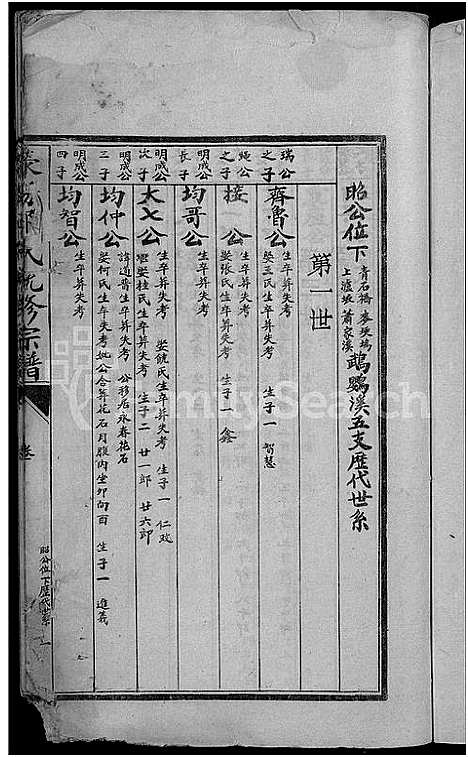 昭公位下 青石橋 麥塅塢 上瀘坂 蕭家溪 鸕鷀溪五支歷代世系
第一世
瑞公之子 齊魯公 生卒葬失考
娶王氏生卒葬失考 生子一 智慧
繩公之子 接一公 生卒葬失考
娶張氏生卒葬失考 生子一 鑫
明成公長子 均哥公 生卒葬失考
明成公次子 大七公 生卒葬失考 娶饒氏生卒葬失考 生子一 仁政
娶桂氏生卒葬失考 生子二 廿一郎 廿六郎
明成公三子 均仲公 諱道普生卒葬失考 公移居永春花石
娶何氏生卒失考 妣公合葬花石月腹內坐卯向酉 生子一 進義
明成公四子 均智公 生卒葬失考
氏統修宗譜
卷
昭公位下歷代世系 一
FamilySearch